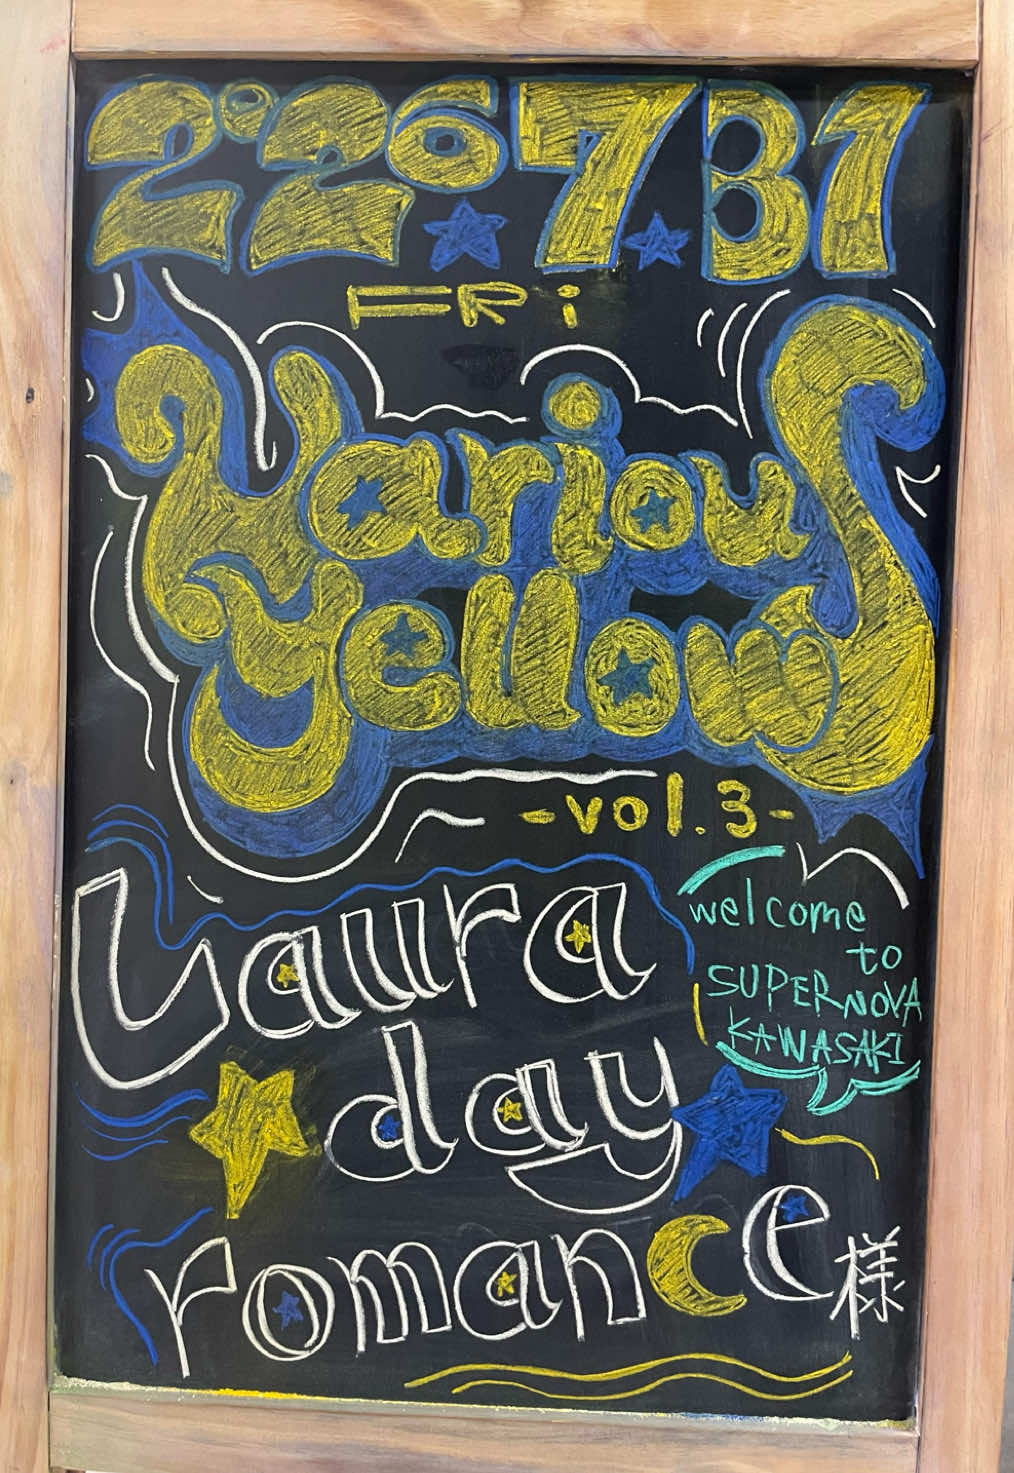 2026 7 31
FRi
Various
Yellow
-vol.3-
Laura
day
romance様
welcome
to
SUPERNOVA
KAWASAKI